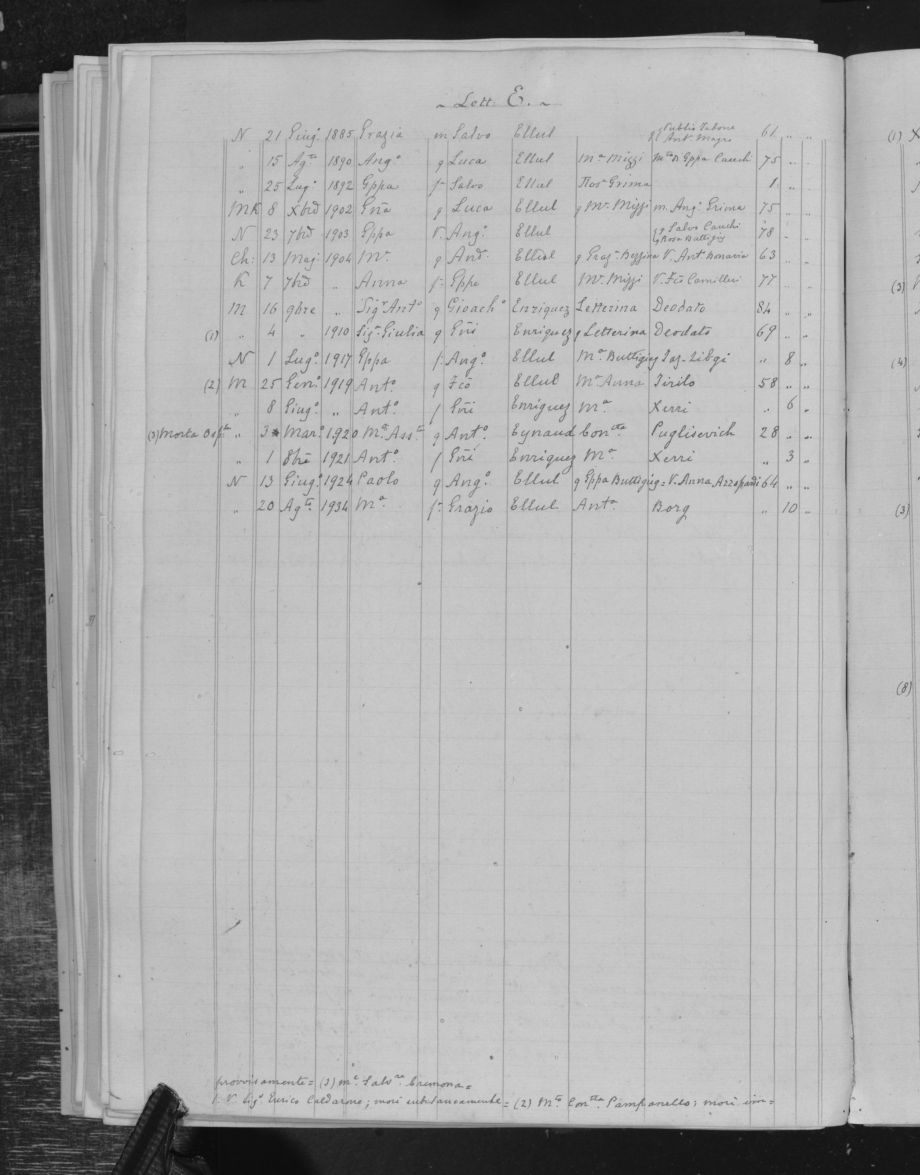 ~ Lett. E. ~
N 21 Giug.º 1885 Grazia m Salvo Ellul q Publio Tabone q Ant.ª Magro 61 " "
" 15 Ag.to 1890 Ang.º q Luca Ellul M.ª Mizzi M.ª Gppa Cauchi 75 " "
" 25 Lug.º 1892 Gppa f.ª Salvo Ellul Ros.ª Grima 1 "
MK 8 Xbrẽ 1902 Gñi q Luca Ellul q M.ª Mizzi m. Ang.ª Grima 75 " "
N 23 7brẽ 1903 Gppa V. Ang.º Ellul q Salvo Cauchi q Rosa Buttigieg 78 " "
Ch: 13 Mag: 1904 M.ª q And.ª Ellul q Graz.ª Bezzina V. Ant.º Bonavia 63 " "
K 7 7brẽ " Anna f.ª Gppe Ellul M.ª Mizzi V. Fcõ Camilleri 77 " "
M 16 9bre " Sig.r Ant.º q Gioach.º Enriquez Letterina Deodato 84 " "
(1) " 4 " 1910 Sig.ª Giulia q Gñi Enriquez q Letterina Deodato 69 " "
N 1 Lug.º 1917 Gppa f. Ang.º Ellul M.ª Buttigieg Taż-Żibġi " 8 "
(2) M 25 Gen.º 1919 Ant.º q Fcõ Ellul M.ª Anna Tirilo 58 " "
" 8 Giug.º " Ant.º f Gñi Enriquez M.ª Xerri " 6 "
(3) Morta Osp.le " 3 Mar.º 1920 M.ª Ass.ta q Ant.º Eynaud Con.tta Puglisevich 28 " "
" 1 8brẽ 1921 Ant.º f Gñi Enriquez M.ª Xerri " 3 "
N 13 Giug.º 1924 Paolo q Ang.º Ellul q Gppa Buttigieg = V. Anna Azzopardi 64 " "
" 20 Ag.to 1934 M.ª f.ª Grazio Ellul Ant.ª Borg " 10 "
provvisamente = (3) m.e Salv.re Cremona =
1. V. Sig.r Eurico Caldarone; morì subitaneamente = (2) M.to Con.tta Pampanello; morì im=
(1)
(3)
(4)
(3)
(8)